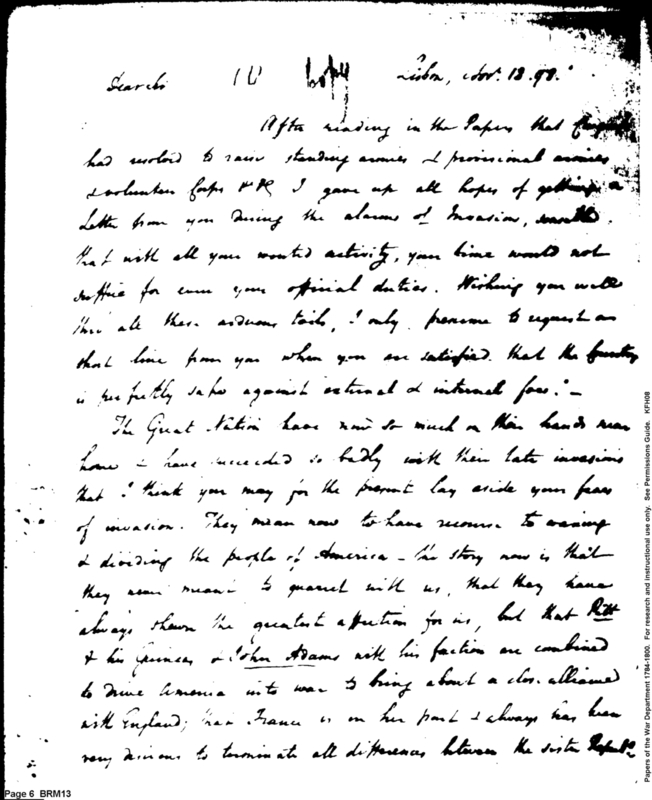 Dear Sir Copy Lisbon, Novr. 18. 98.
After reading in the Papers that
had resolved to raise standing armies & provisional armies
& volunteer Corps &c &c I gave up all hopes of getting a
Letter from you during the alarms of Invasion,
that with all your wonted activity, your time would not
suffice for even your official duties. Wishing you well
thro' all these arduous toils, I only presume to request a
short line from you when you are satisfied that the Country
is perfectly safe against external & internal foes. —
The Great Nation have now so much on their hands near
home & have succeeded so badly with their late invasions
that I think you may for the present lay aside your fears
of invasion. They mean now to have recourse to
& dividing the people of America — the story now is that
they never meant to quarrel with us, that they have
always shewn the greatest affection for us, but that Pitt
& his Guineas & John Adams with his faction are combined
to drive America into war to bring about a close alliance
with England; that France is on her part & always has been
very desirous to terminate all differences between the sister Republics
Page 6 BRM13
Papers of the War Department 1784-1800. For research and instructional use only. See Permissions Guide. KFH08